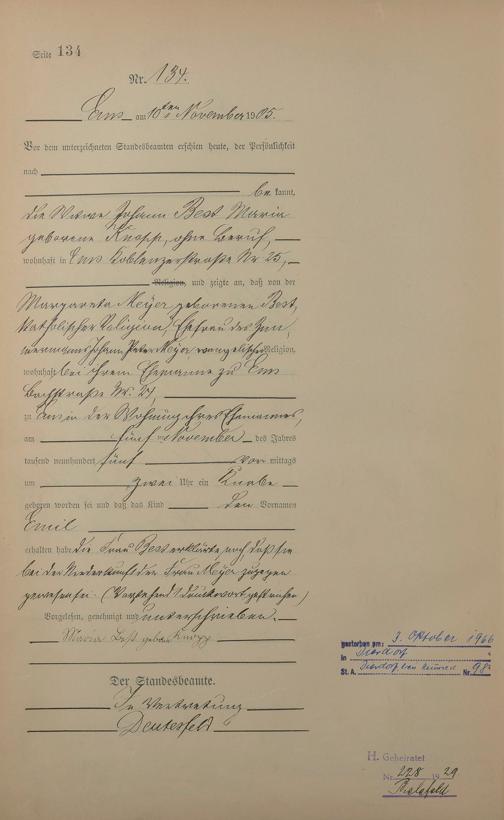 Seite 134
Nr. 134.
Ems am 10ten November 1905.
Vor dem unterzeichneten Standesbeamten erschien heute, der Persönlichkeit
nach
be kannt,
die Witwe Johann Best Maria
geborene Knopp, ohne Beruf,
wohnhaft in Ems Koblenzerstraße Nr 25,
Religion, und zeigte an, daß von der
Margareta Meyer geborenen Best,
katholischer Religion, Ehefrau des
Johann Peter Meyer evangelischer Religion,
wohnhaft bei ihrem Ehemanne zu Ems
Bachstraße Nr.
zu Ems in der Wohnung ihres Ehemannes,
am fünf November des Jahres
tausend neunhundert fünf vor mittags
um zwei Uhr ein Knabe
geboren worden sei und daß das Kind den Vornamen
Emil
erhalten habe. Die Frau Best erklärte, noch daß sie
bei der Niederkunft der Frau Meyer zugegen
gewesen sei. (Vorstehend 1 Druckwort gestrichen)
Vorgelesen, genehmigt und unterschrieben.
Maria Best geborene Knopp
Der Standesbeamte.
In Vertretung
gestorben am: 3. Oktober 1966
in
St. A. Nr. 98
H. Geheiratet
Nr. 228 1929
Bielefeld